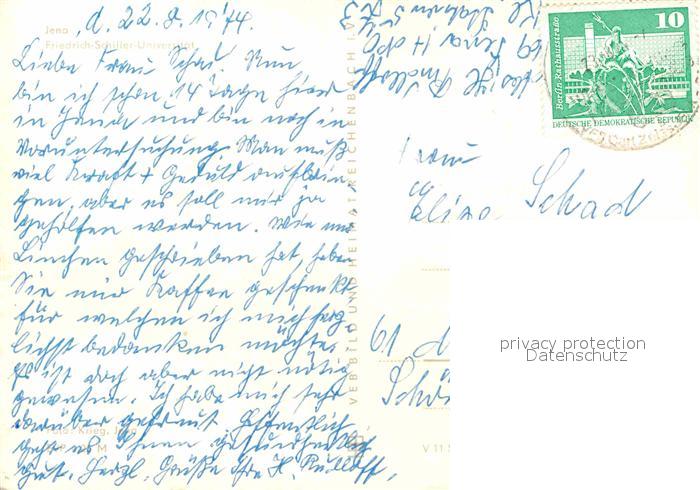 Jena, d. 22.8.1974.
Friedrich-Schiller-Universität
Liebe Frau Schad Nun
bin ich schon 14 Tage hier
in Jena und bin noch in
Voruntersuchung. Man muß
viel Kraft + Geduld aufbrin-
gen, aber es soll mir ja
geholfen werden. Wie mir
Linchen geschrieben hat, haben
Sie mir Kaffee geschenkt
für welchen ich mich herz-
lichst bedanken möchte.
Es ist doch aber nicht nötig
gewesen. Ich habe mich sehr
darüber gefreut. Hoffentlich
geht es Ihnen gesundheitlich
gut. Herzl. Grüße Ihre H. Rudloff.
Foto: Krieg, Jena
VEB BILD UND HEIMAT REICHENBACH I. V.
V 11
69 Jena
10
Berlin, Rathausstraße
DEUTSCHE DEMOKRATISCHE REPUBLIK
Frau
Elina Schad
61
privacy protection
Datenschutz